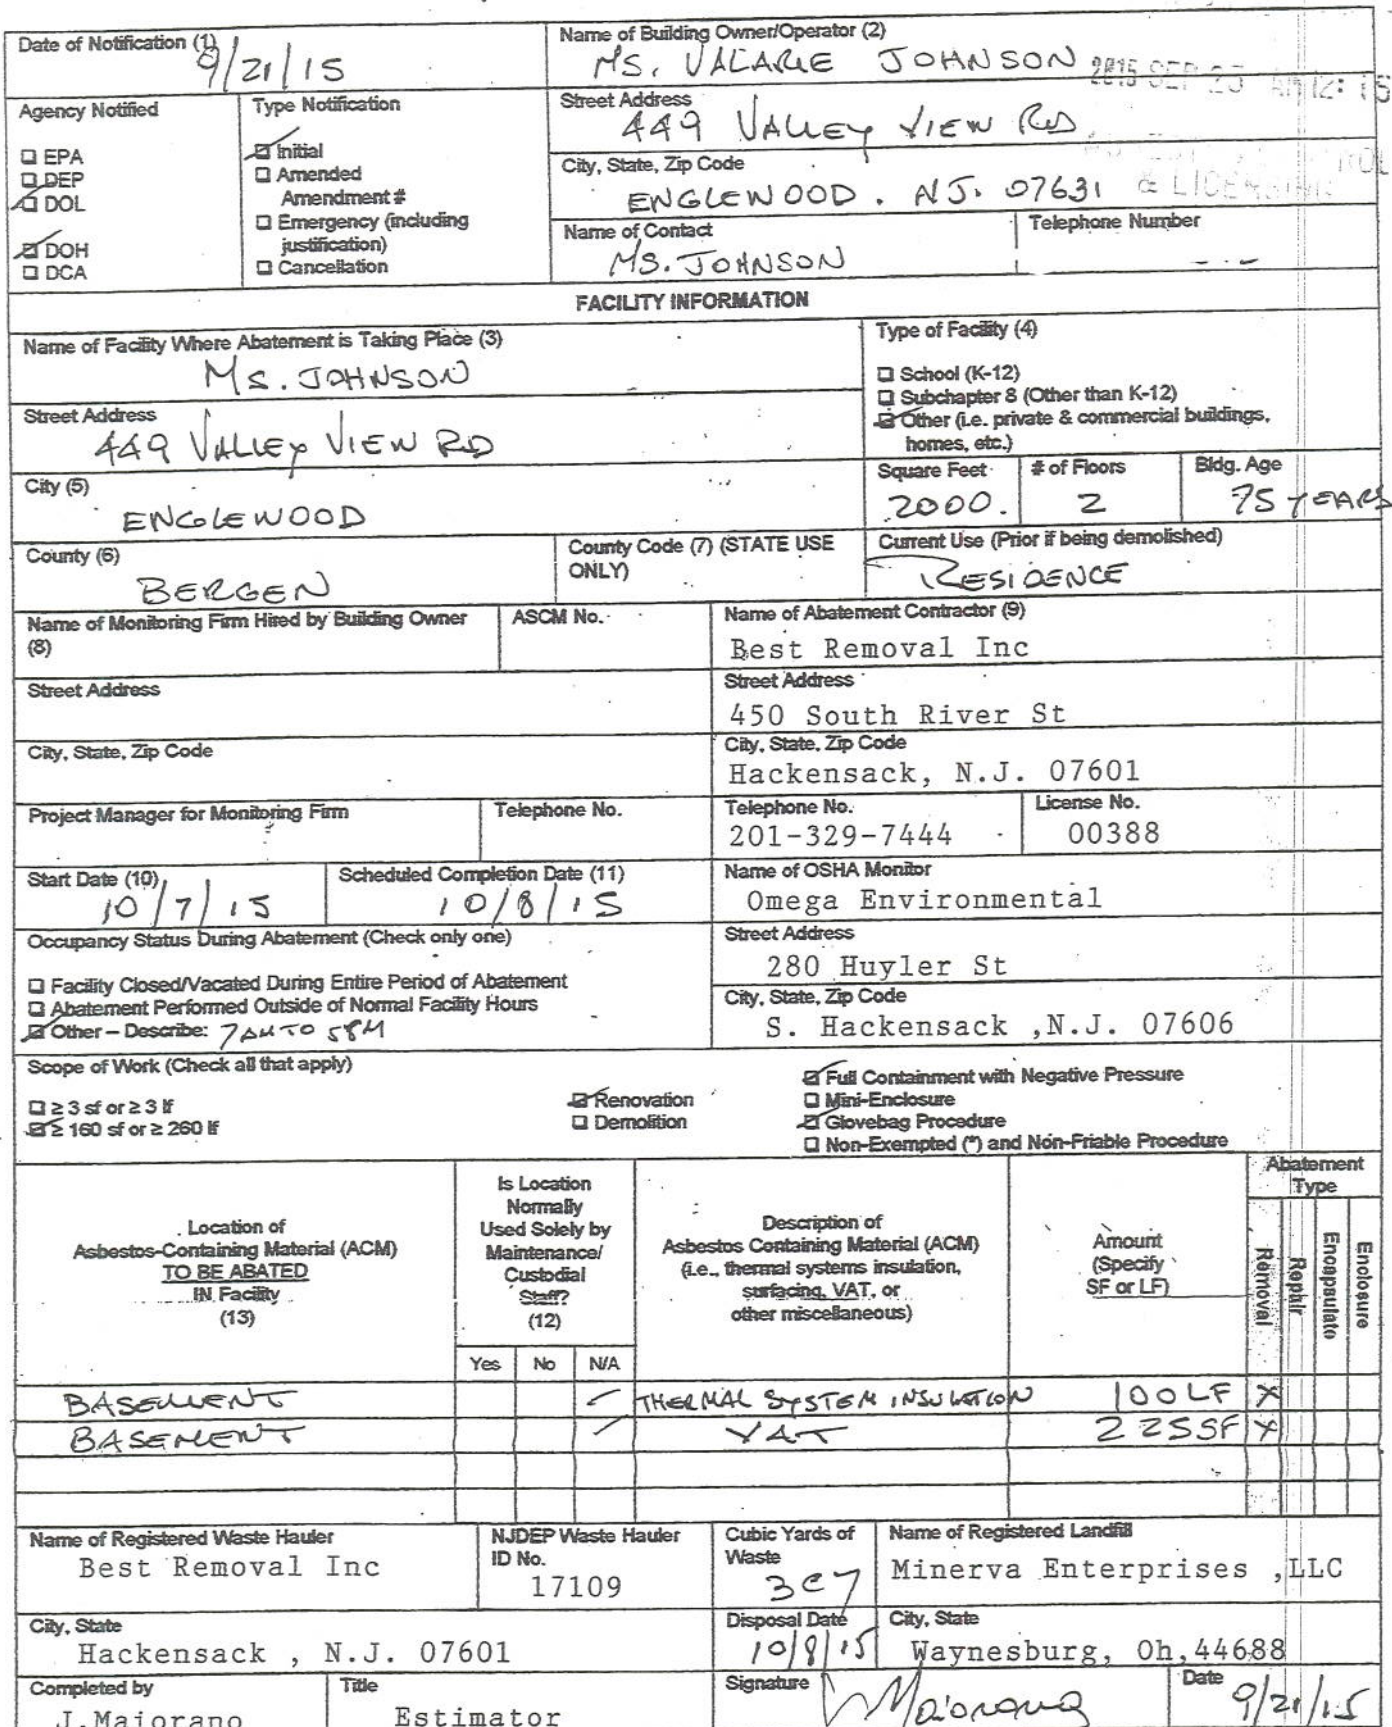 Date of Notification (1)
9/21/15
Name of Building Owner/Operator (2)
MS. VALARIE JOHNSON
2015 SEP 25 AM 12: 15
Agency Notified
EPA
DEP
DOL
DOH
DCA
Type Notification
Initial
Amended
Amendment #
Emergency (including
justification)
Cancellation
Street Address
449 VALLEY VIEW RD
City, State, Zip Code
ENGLEWOOD. NJ. 07631
& LICENSING
Name of Contact
MS. JOHNSON
Telephone Number
FACILITY INFORMATION
Name of Facility Where Abatement is Taking Place (3)
MS. JOHNSON
Type of Facility (4)
School (K-12)
Subchapter 8 (Other than K-12)
Other (i.e. private & commercial buildings,
homes, etc.)
Street Address
449 VALLEY VIEW RD
City (5)
ENGLEWOOD
Square Feet
2000.
# of Floors
2
Bldg. Age
75 YEARS
County (6)
BERGEN
County Code (7) (STATE USE
ONLY)
Current Use (Prior if being demolished)
RESIDENCE
Name of Monitoring Firm Hired by Building Owner
(8)
ASCM No.
Name of Abatement Contractor (9)
Best Removal Inc
Street Address
Street Address
450 South River St
City, State, Zip Code
City, State, Zip Code
Hackensack, N.J. 07601
Project Manager for Monitoring Firm
Telephone No.
Telephone No.
201-329-7444
License No.
00388
Start Date (10)
10/7/15
Scheduled Completion Date (11)
10/8/15
Name of OSHA Monitor
Omega Environmental
Occupancy Status During Abatement (Check only one)
Facility Closed/Vacated During Entire Period of Abatement
Abatement Performed Outside of Normal Facility Hours
Other – Describe: 7AM TO 5PM
Street Address
280 Huyler St
City, State, Zip Code
S. Hackensack ,N.J. 07606
Scope of Work (Check all that apply)
≥ 3 sf or ≥ 3 lf
≥ 160 sf or ≥ 260 lf
Renovation
Demolition
Full Containment with Negative Pressure
Mini-Enclosure
Glovebag Procedure
Non-Exempted (*) and Non-Friable Procedure
Location of
Asbestos-Containing Material (ACM)
TO BE ABATED
IN Facility
(13)
Is Location
Normally
Used Solely by
Maintenance/
Custodial
Staff?
(12)
Yes No N/A
Description of
Asbestos Containing Material (ACM)
(i.e., thermal systems insulation,
surfacing, VAT, or
other miscellaneous)
Amount
(Specify
SF or LF)
Abatement
Type
Removal
Repair
Encapsulate
Enclosure
BASEMENT THERMAL SYSTEM INSULATION 100LF X
BASEMENT VAT 225SF X
Name of Registered Waste Hauler
Best Removal Inc
NJDEP Waste Hauler
ID No.
17109
Cubic Yards of
Waste
3CY
Name of Registered Landfill
Minerva Enterprises ,LLC
City, State
Hackensack , N.J. 07601
Disposal Date
10/8/15
City, State
Waynesburg, Oh,44688
Completed by
J.Maiorano
Title
Estimator
Signature
Maiorano
Date
9/21/15